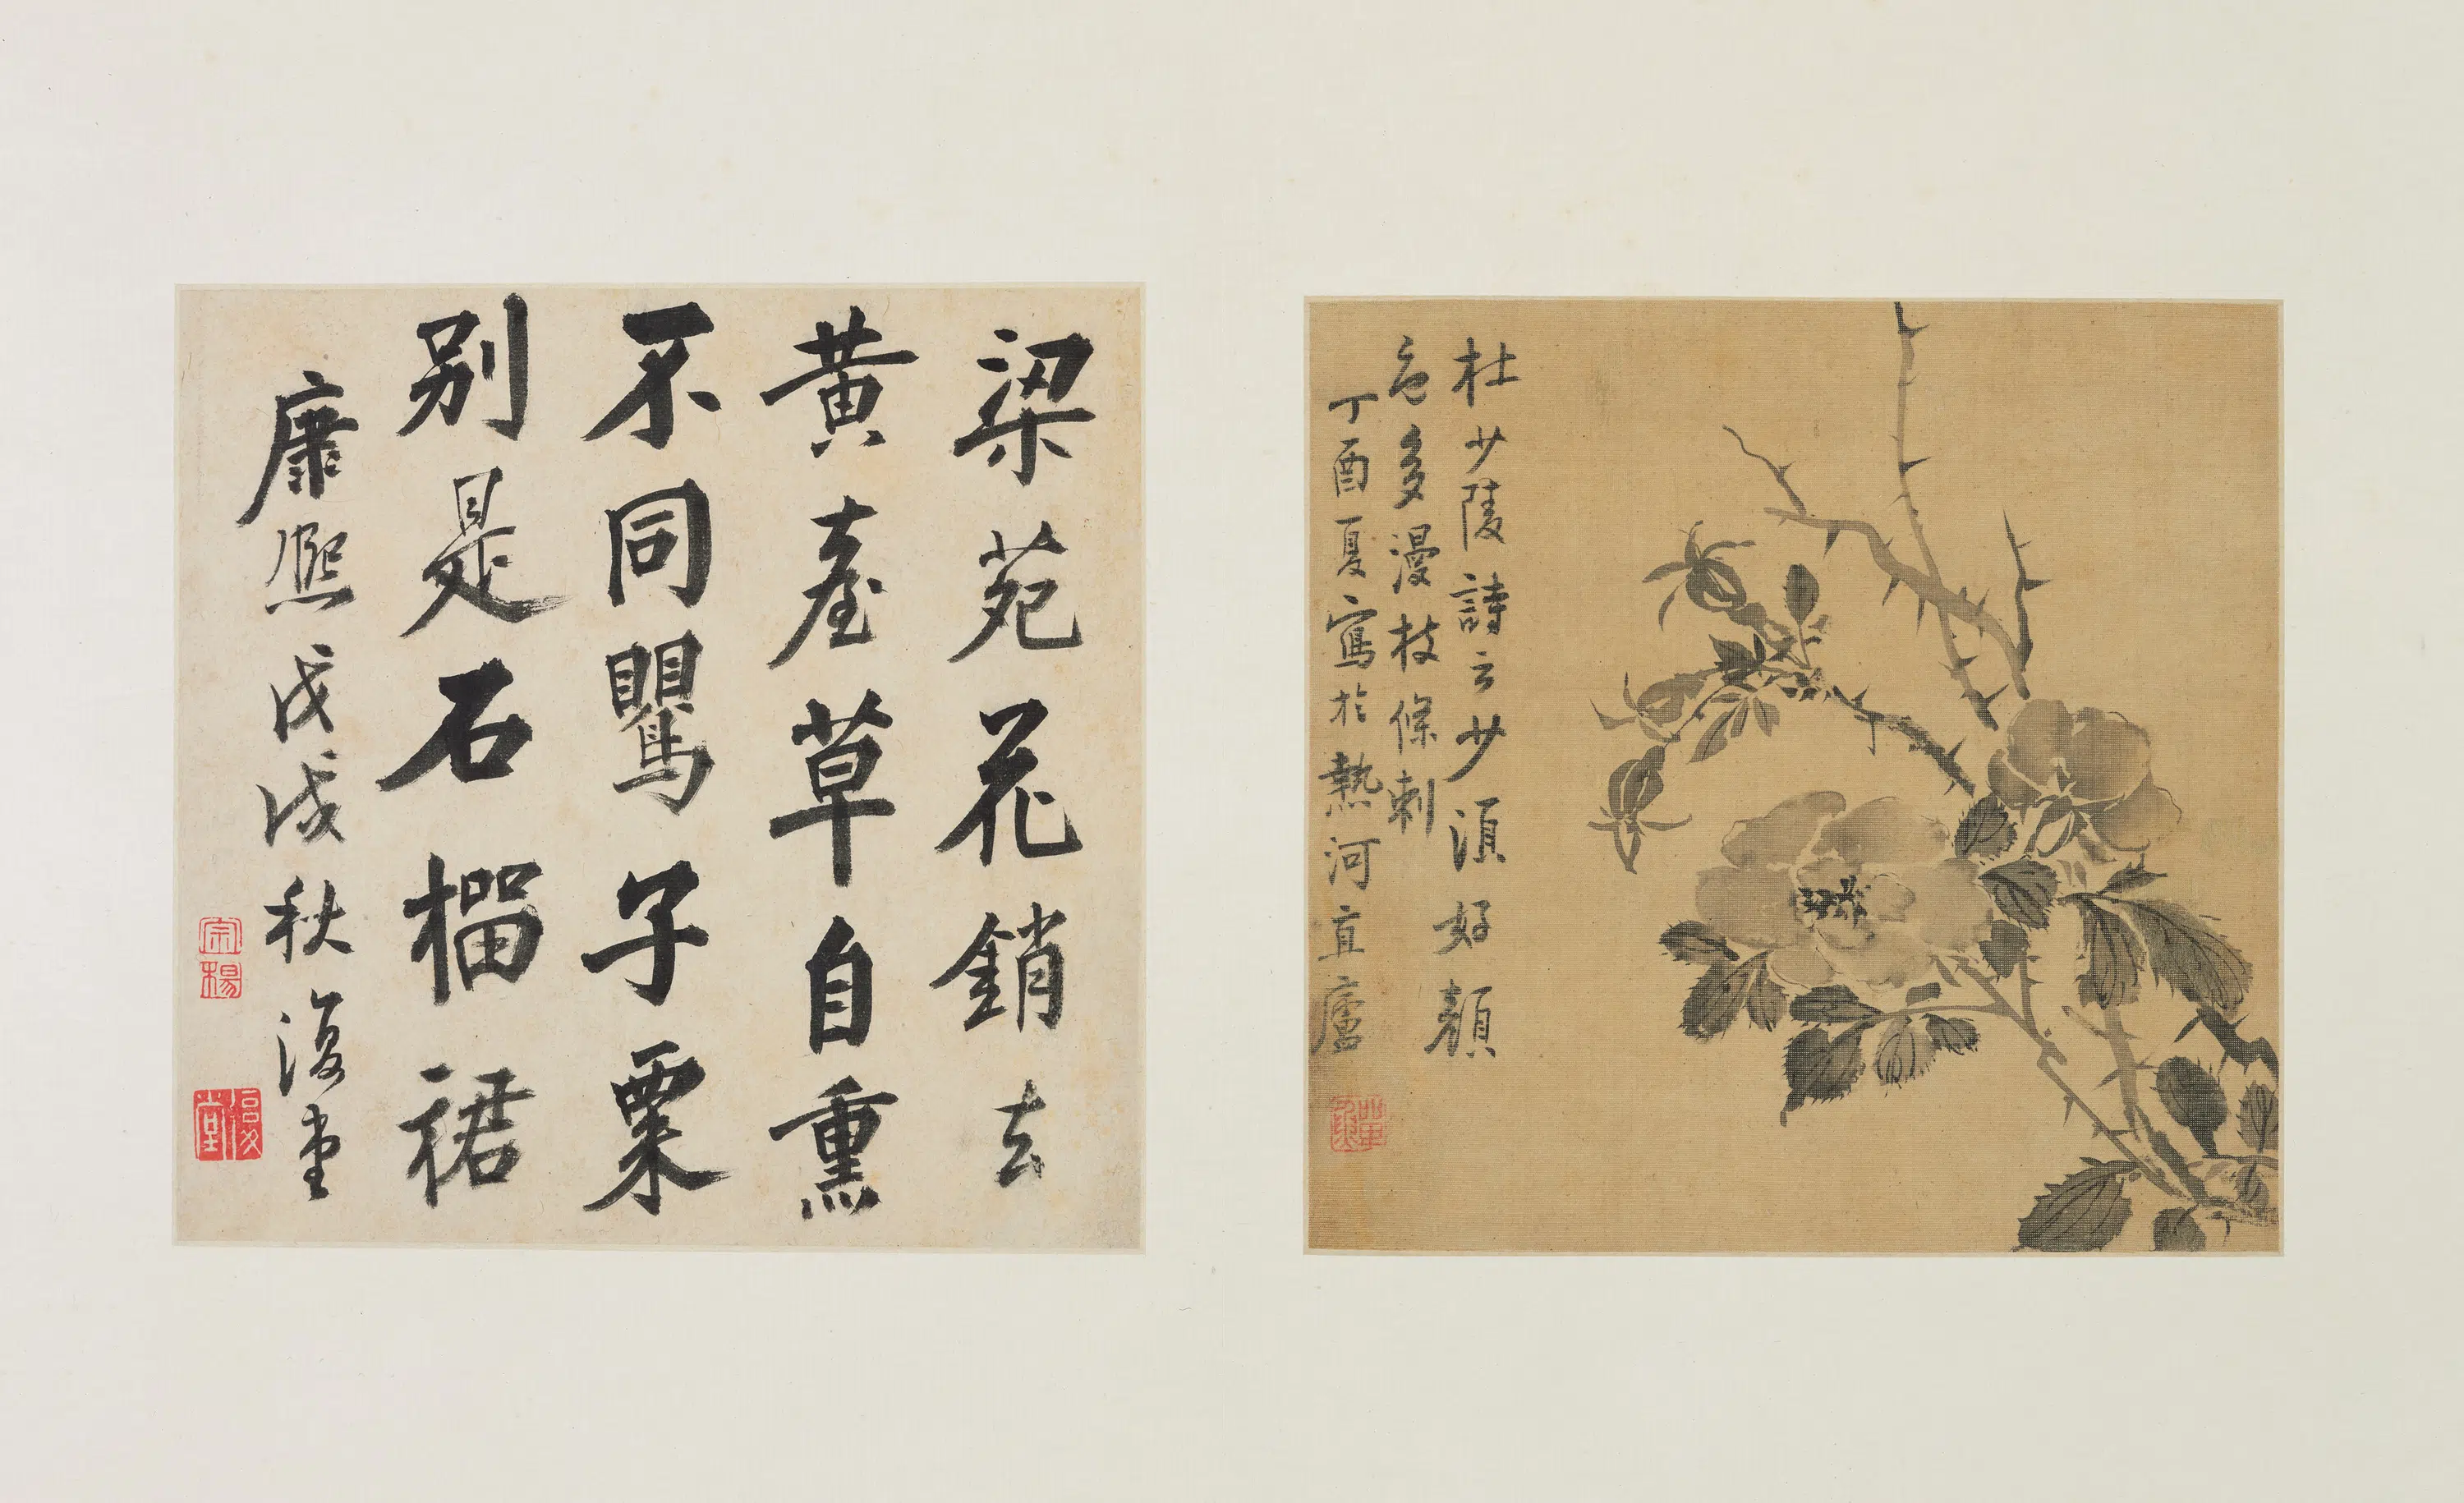 杜少陵詩云少須好顏
色多漫枝條刺
丁酉夏寫於熱河直廬
梁苑花銷去
黃臺草自熏
不同鸎子粟
別是石橊裙
康熙戊戌秋復堂
宗楊
復堂